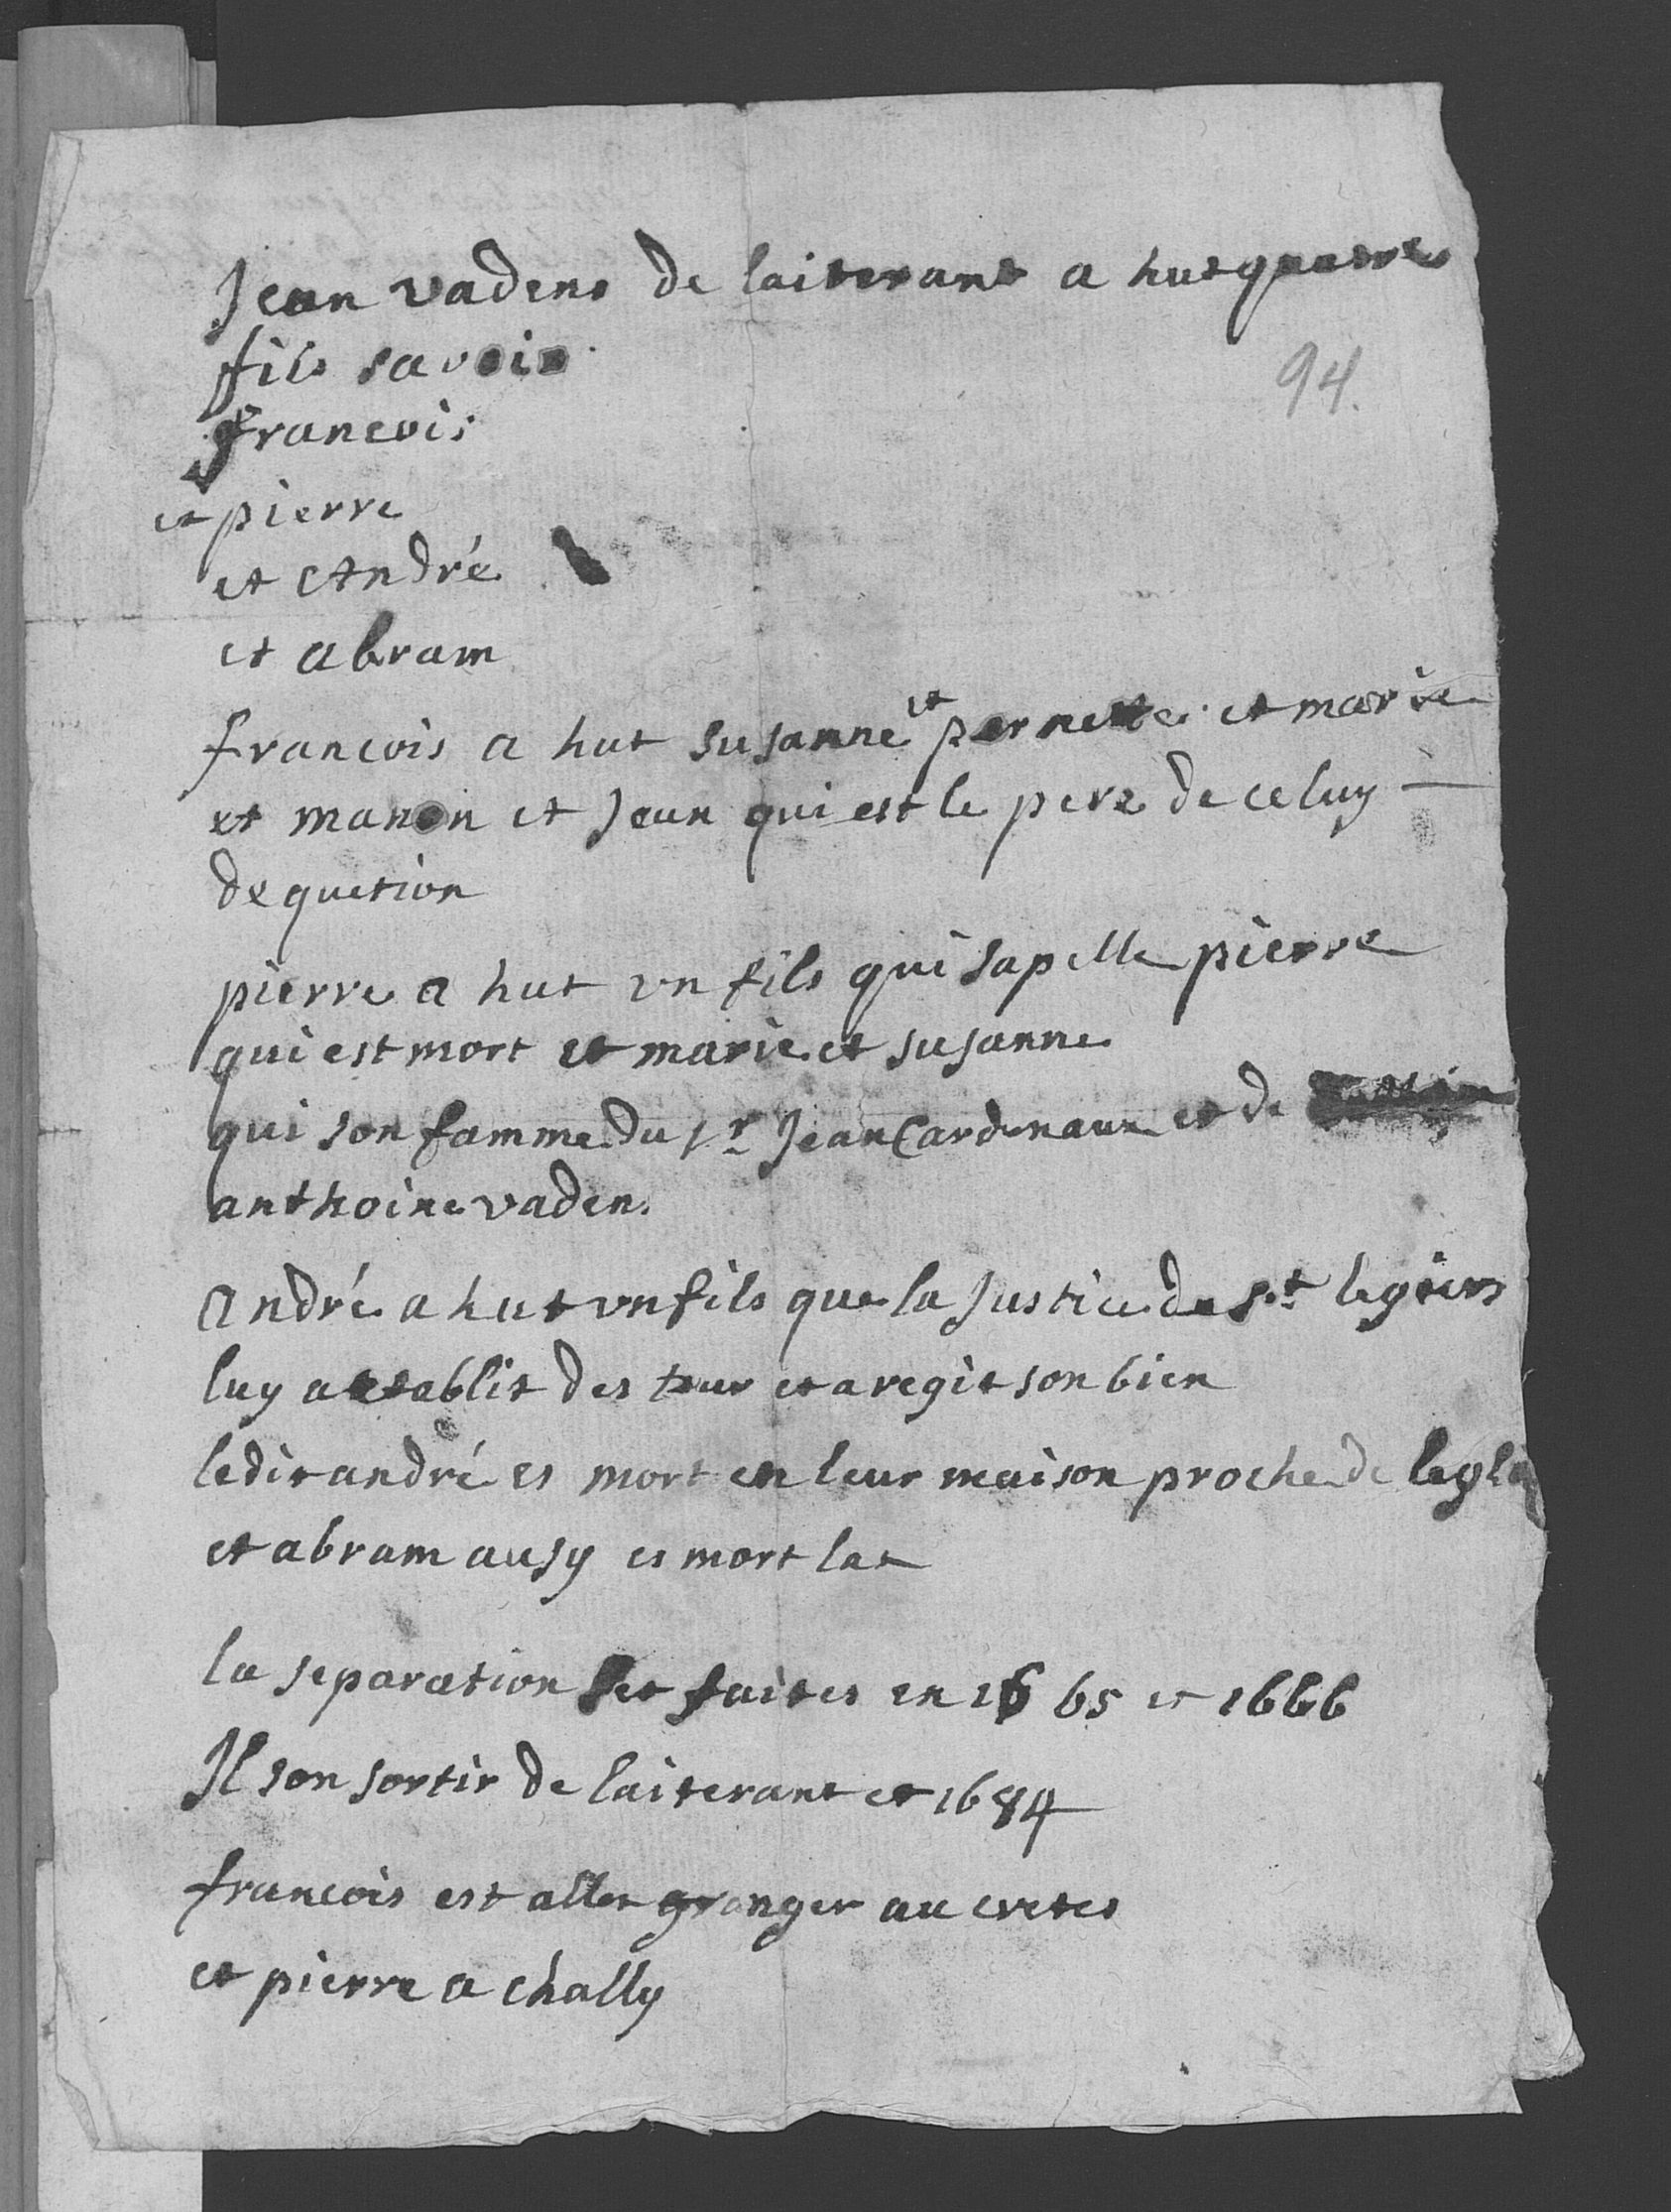 Jean vadens de laiterant a hut quatres
fils savoir
94.
francois
et pierre
et André
et abram
francois a hut susanne et pernette et marie
et manon et Jean qui est le pere de celuy —
de quetion
pierre a hut vn fils qui sapelle pierre
qui est mort et marie et susanne
qui son famme du sr Jean Cardinaux et de
anthoine vaden.
André a hut vn fils que la Justice de st legiers
luy a etablit des teur et a regit son bien
ledit andré es mort en leur maison proche de
et abram ausy es mort lat
la separation set faites en 1665 et 1666
Il son sortir de laiterant et 1684
francois est aller granger au cretes
et pierre a chally